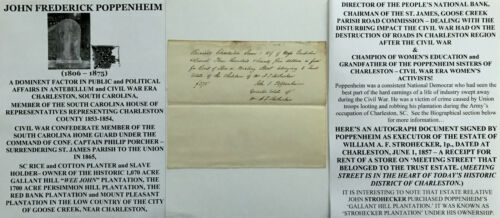 JOHN FREDERICK POPPENHEIM
(1806 – 1875)
A DOMINANT FACTOR IN PUBLIC and POLITICAL
AFFAIRS IN ANTEBELLUM and CIVIL WAR ERA
CHARLESTON, SOUTH CAROLINA.
MEMBER OF THE SOUTH CAROLINA HOUSE OF
REPRESENTATIVES REPRESENTING CHARLESTON
COUNTY 1853-1854,
CIVIL WAR CONFEDERATE MEMBER OF THE
SOUTH CAROLINA HOME GUARD UNDER THE
COMMAND OF CONF. CAPTAIN PHILIP PORCHER –
SURRENDERING ST. JAMES PARISH TO THE UNION
IN 1865,
SC RICE and COTTON PLANTER and SLAVE
HOLDER– OWNER OF THE HISTORIC 1,070 ACRE
GALLANT HILL "WEE JOHN" PLANTATION, THE
1700 ACRE PERSIMMON HILL PLANTATION, THE
RED BANK PLANTATION and MOUNT PLEASANT
PLANTATION IN THE LOW COUNTRY OF THE CITY
OF GOOSE CREEK, NEAR CHARLESTON,
Received Charleston June 1
Three Hundred Seventy five dollars
for Rent of Store in Meeting Street belonging to
Estate of the
$375
John F. Poppenheim
DIRECTOR OF THE PEOPLE'S NATIONAL BANK.
CHAIRMAN OF THE ST. JAMES, GOOSE CREEK
PARISH ROAD COMMISSION – DEALING WITH THE
DISTURBING IMPACT THE CIVIL WAR HAD ON THE
DESTRUCTION OF ROADS IN CHARLESTON REGION
AFTER THE CIVIL WAR
&
CHAMPION OF WOMEN'S EDUCATION and
GRANDFATHER OF THE POPPENHEIM SISTERS OF
CHARLESTON – CIVIL WAR ERA WOMEN'S
ACTIVISTS!
Poppenheim was a consistent National Democrat who had seen the
best part of the hard earnings of a life of industry swept away
during the Civil War. He was a victim of crime caused by Union
troops looting and robbing his plantation during the Army's
occupation of Charleston, SC. See the Biographical section below
for more information…
HERE'S AN AUTOGRAPH DOCUMENT SIGNED BY
POPPENHEIM AS EXECUTOR OF THE ESTATE OF
WILLIAM A. F. STROHECKER, 1p., DATED AT
CHARLESTON, JUNE 1, 1857 – A RECEIPT FOR
RENT OF A STORE ON 'MEETING STREET' THAT
BELONGED TO THE TRUST ESTATE. (MEETING
STREET IS IN THE HEART OF TODAY'S HISTORIC
DISTRICT OF CHARLESTON.)
IT IS INTERESTING TO NOTE THAT ESTATE RELATIVE
JOHN STROHECKER PURCHASED POPPENHEIM'S
'GALLANT HILL PLANTATION.' IT WAS KNOWN AS
'STROHECKER PLANTATION' UNDER HIS OWNERSHIP